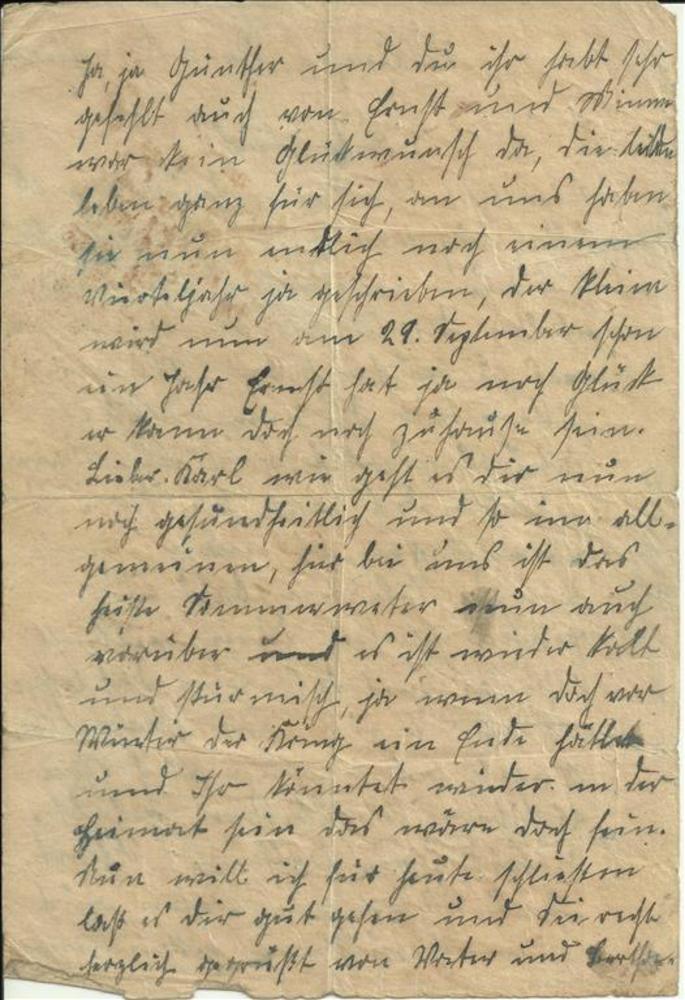 Ja, ja Günther und du ihr habt sehr
gefehlt auch von Ernst und Minna
war kein Glückwunsch da, die beiden
leben ganz für sich, an uns haben
sie nun endlich nach einem
Vierteljahr ja geschrieben, der kleine
wird nun am 29. September schon
ein Jahr Ernst hat ja noch Glück
er kann doch noch zuhause sein.
Lieber Karl wie geht es dir nun
noch gesundheitlich und so im all-
gemeinen, hier bei uns ist das
heiße Sommerwetter nun auch
vorüber und es ist wieder kalt
und stürmisch, ja wenn doch vor
Winter der Krieg ein Ende hätte
und Ihr könntet wieder in der
Heimat sein das wäre doch fein.
Nun will ich für heute schließen
laß es dir gut gehen und sei recht
herzlich gegrüßt von Vater und